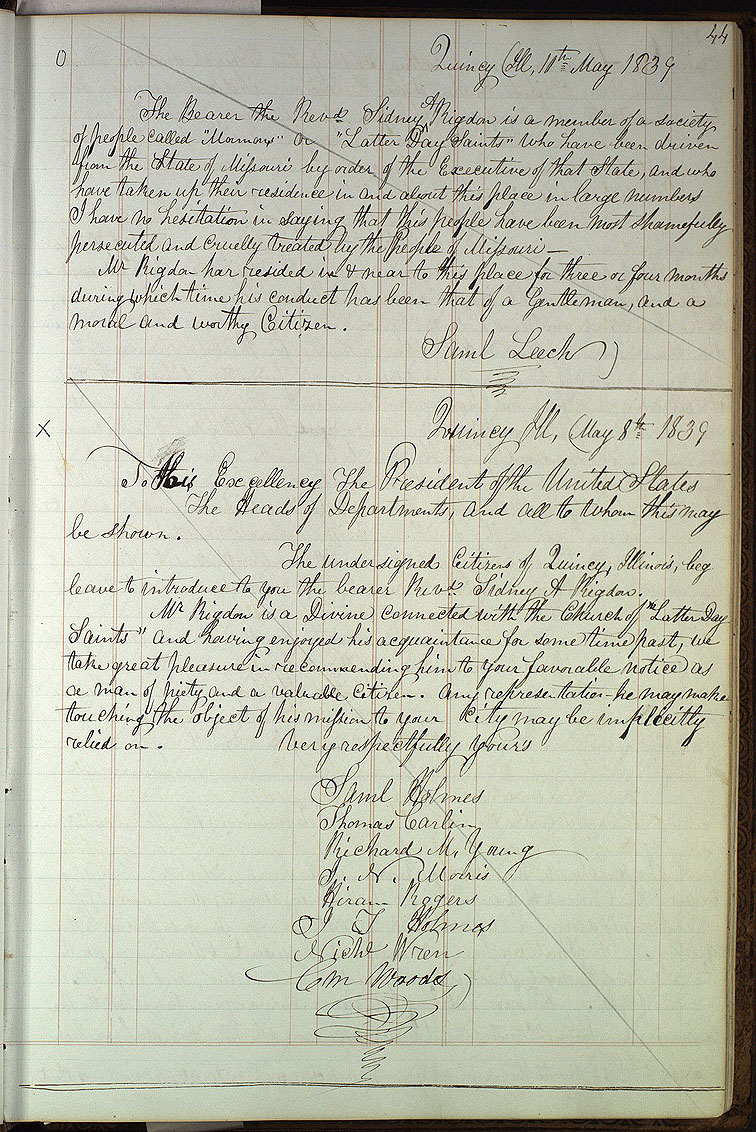 44
O
Quincy Ill, 11th May 1839
The Bearer the Revd. Sidney A Rigdon is a member of a society
of people called "Mormons" or "Latter Day Saints" who have been driven
from the State of Missouri by order of the Executive of that State, and who
have taken up their residence in and about this place in large numbers
I have no hesitation in saying that this people have been most shamefully
persecuted and cruelly treated by the people of Missouri—
Mr Rigdon has resided in & near to this place for three or four months
during which time his conduct has been that of a Gentleman, and a
moral and worthy Citizen.
Saml Leech
X
Quincy Ill, May 8th 1839
To His Excellency The President of the United States
The Heads of Departments, and all to whom this may
be shown.
The undersigned Citizens of Quincy, Illinois, beg
leave to introduce to you the bearer Revd. Sidney A Rigdon.
Mr Rigdon is a Divine connected with the Church of "Latter Day
Saints" and having enjoyed his acquaintance for some time past, we
take great pleasure in recommending him to your favorable notice as
a man of piety and a valuable Citizen. Any representation he may make
touching the object of his mission to your City may be implicitly
relied on. Very respectfully yours
Saml Holmes
Thomas Carlin
Richard M. Young
I. N. Morris
Hiram Rogers
J T Holmes
Nichl Wren
C M Woods